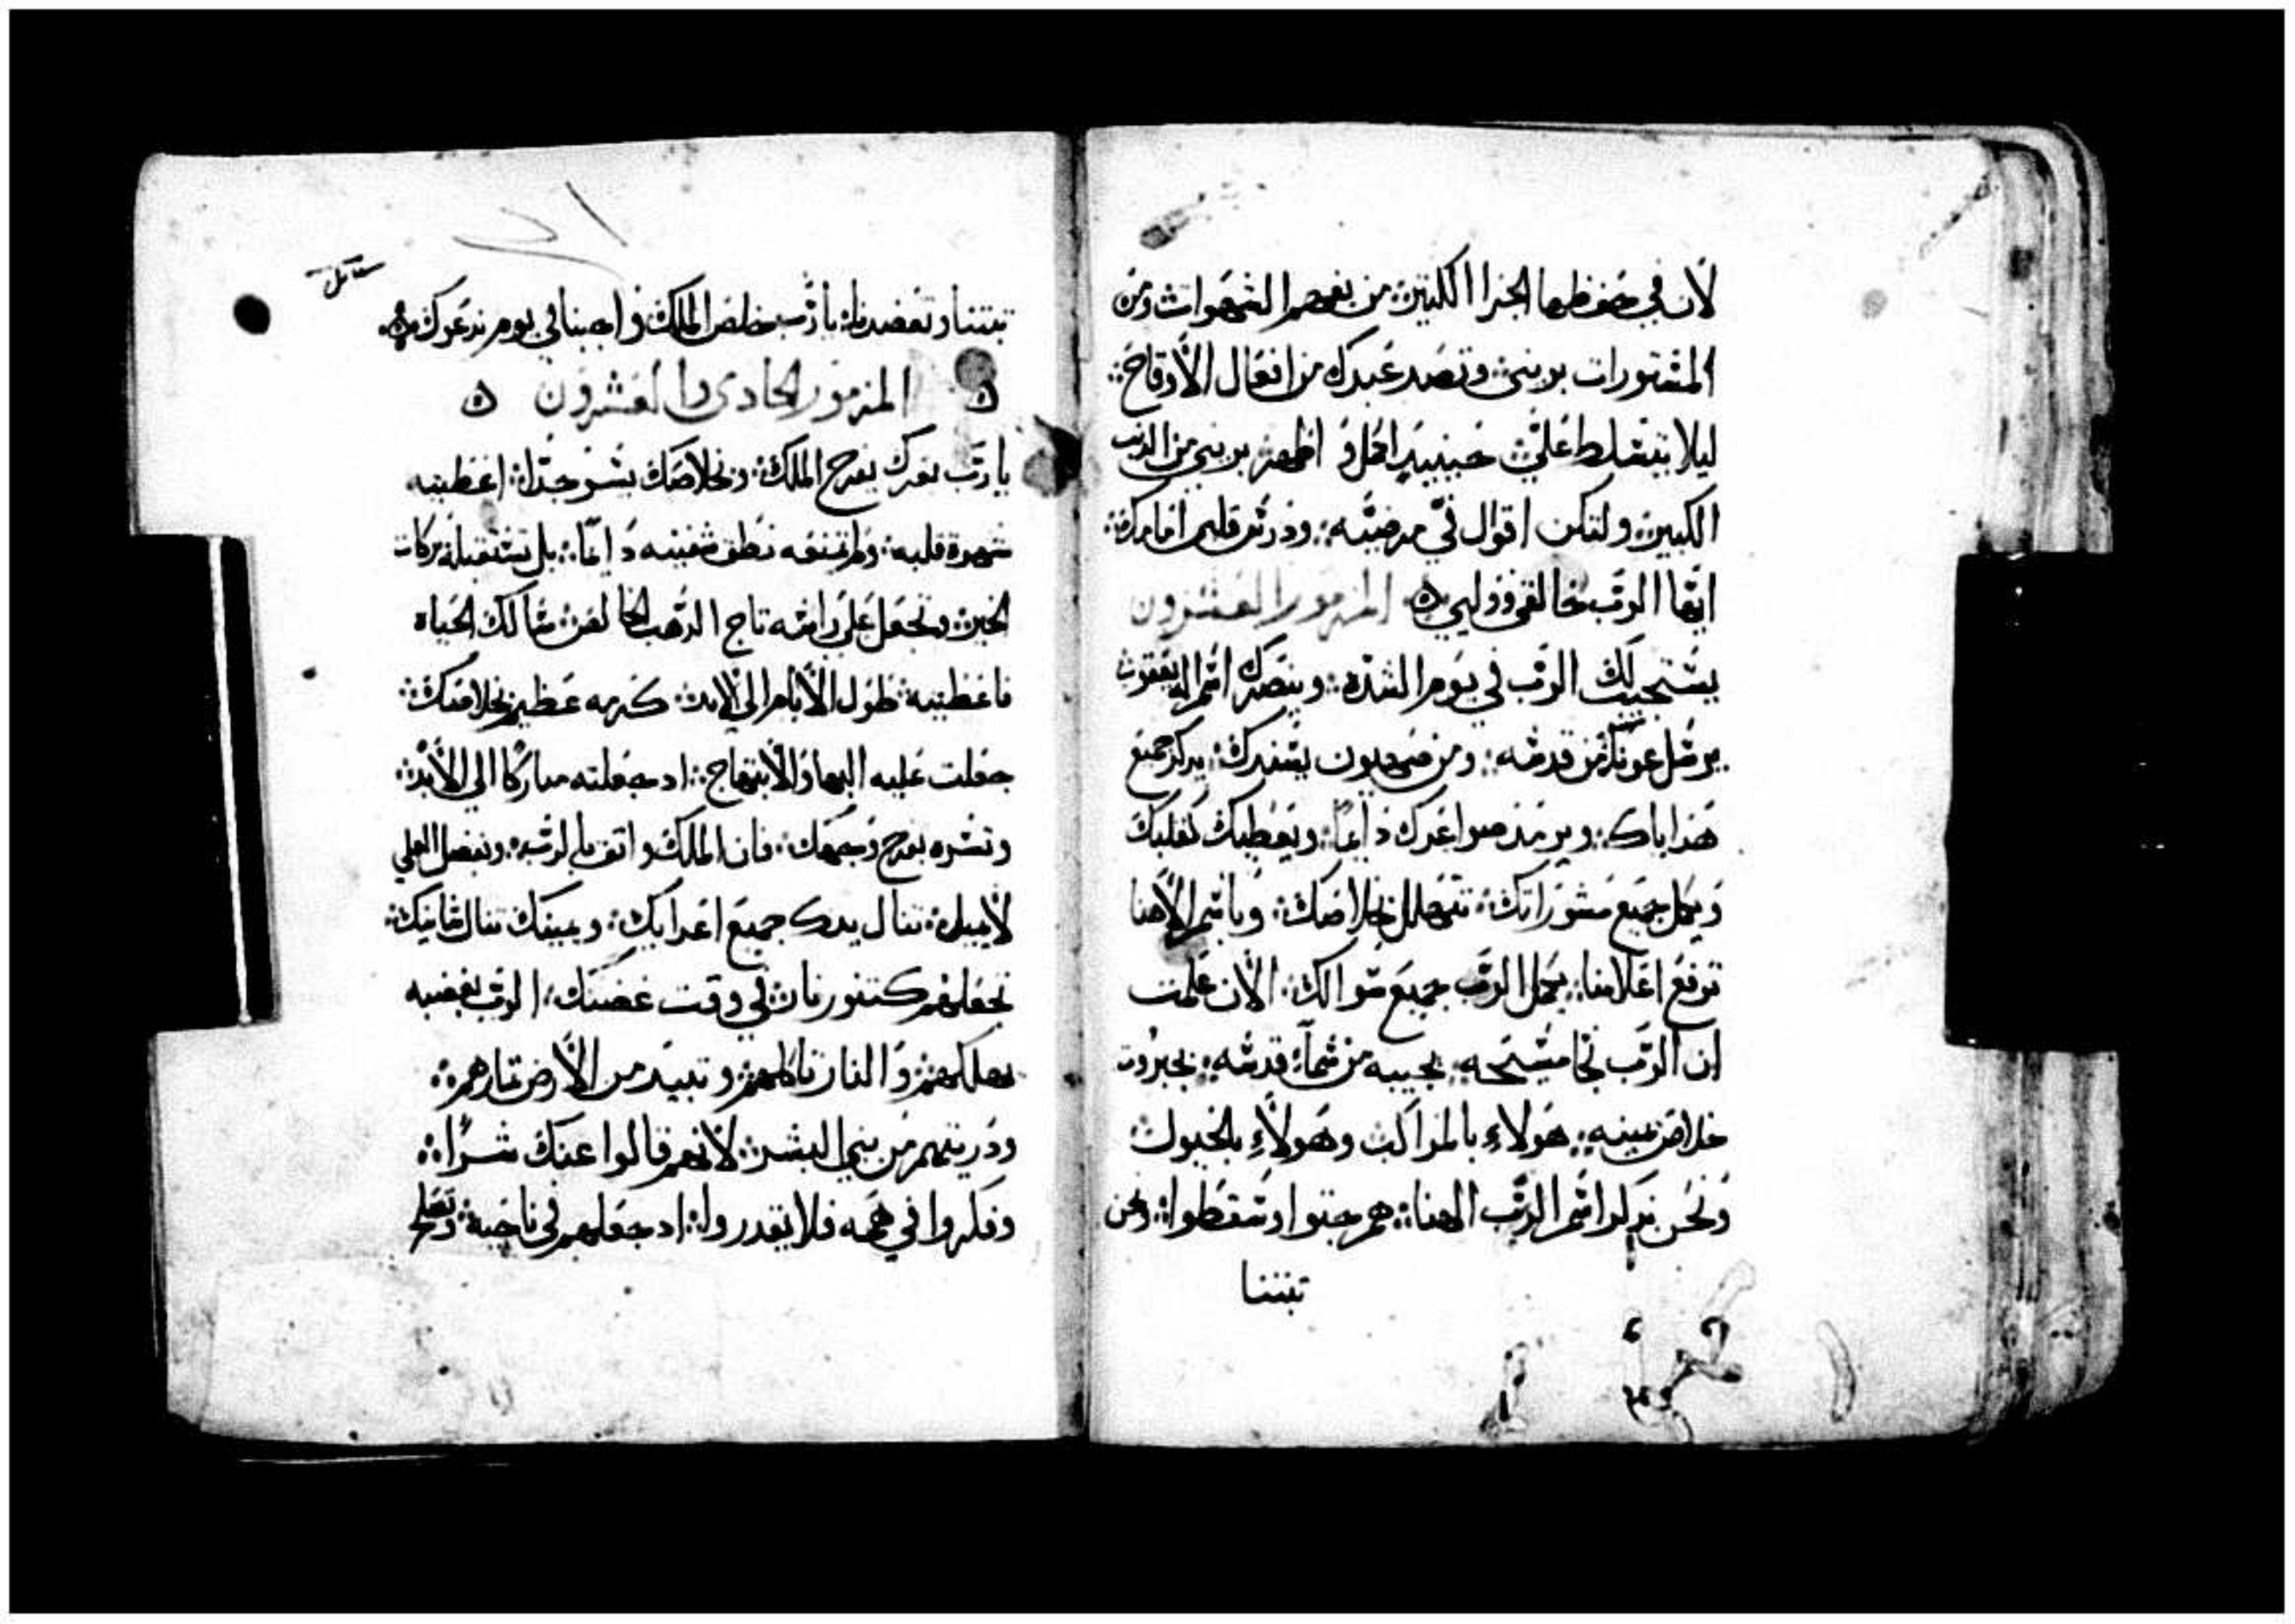 لان في حفظها الجزا الكثير: من يفهم الشهوات ومن
المستورات بريني: وتصد عبدك من افعال الاوقاح:
ليلا يتسلط علي: حينيد اكمل و اطهر بريني من الدنب
الكبير: ولتكن اقوال في مرضيه: ودرس قلبي امامك:
ايها الرب خالقي ووليي ه المزمور العشرون
يستجيب لك الرب في يوم الشده: وينصرك اسم اله يعقوب
يرسل عونك من قدسه: ومن صهيون يسندك: يدكر جميع
هداياك: ويرمد صواعدك دايما: ويعطيك كقلبك
ويكمل جميع مشوراتك: نتهلل بخلاصك: وباسم الاهنا
نرفع اعلامنا: يكمل الرب جميع سوالك: الان علمت
ان الرب نجا مسيحه: يجيبه من سماء قدسه: بجبروت
خلاص يمينه: هولاء بالمراكب وهولاء بالخيول:
ونحن ندكر اسم الرب الهنا: هم جتوا وسقطوا: ونحن
تبتنا
تبتنا وتعضدنا: يارب خلص الملك و اجبنا في يوم ندعوك ه
ه المزمور الحادي والعشرون ه
يارب بعزك يفرح الملك: وبخلاصك يسر جدا: اعطيته
شهوة قلبه: ولم تمنعه نطق شفتيه دايما: بل تستقبله بركات
الخير: وتجعل على راسه تاج الدهب الخالص: سالك الحياه
فاعطيته: طول الايام الى الابد: كريمه عظيم بخلاصك:
جعلت عليه البها والابتهاج: اد جعلته مباركا الى الابد:
وتسره بفرح وجهك: فان الملك واتق بالرب: وبفضل العلي
لا يميل: تنال يدك جميع اعدايك: ويمينك تنال شانيك:
تجعلهم كتنور نار: في وقت غضبك: الرب بغضبه
يهلكهم: والنار تاكلهم: وتبيد من الارض تمارهم:
ودريتهم من بني البشر: لانهم قالوا عنك شرا:
وفكروا في همه فلا يقدروا: اد جعلهم في ناحية: